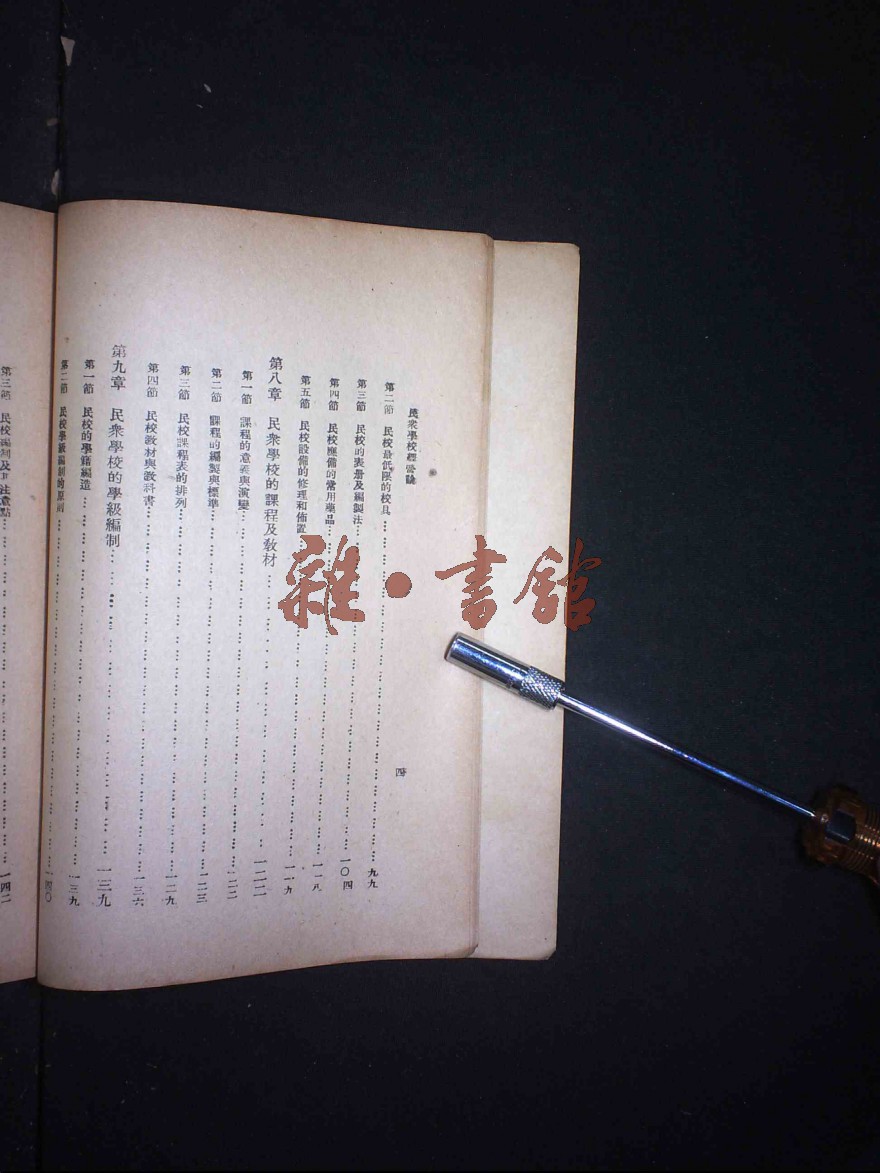 民衆學校經營論
四
第二節 民校最低限的校具……九九
第三節 民校的表册及編製法……一〇四
第四節 民校應備的常用藥品……一一八
第五節 民校設備的修理和佈置……一一九
第八章 民衆學校的課程及教材……一二二
第一節 課程的意義與演變……一二二
第二節 課程的編製與標準……一二三
第三節 民校課程表的排列……一二九
第四節 民校教材與教科書……一三六
第九章 民衆學校的學級編制……一三九
第一節 民校的學籍編造……一三九
第二節 民校學級編制的原則……一四〇
第三節 民校編制及其注意點……一四二
雜·書館